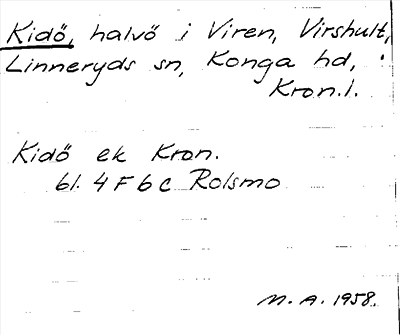 Kidö, halvö i Viren, Virshult,
Linneryds sn, Konga hd,
Kron.l.
Kidö ek Kron.
bl. 4 F 6 c Rolsmo
M. A. 1958.